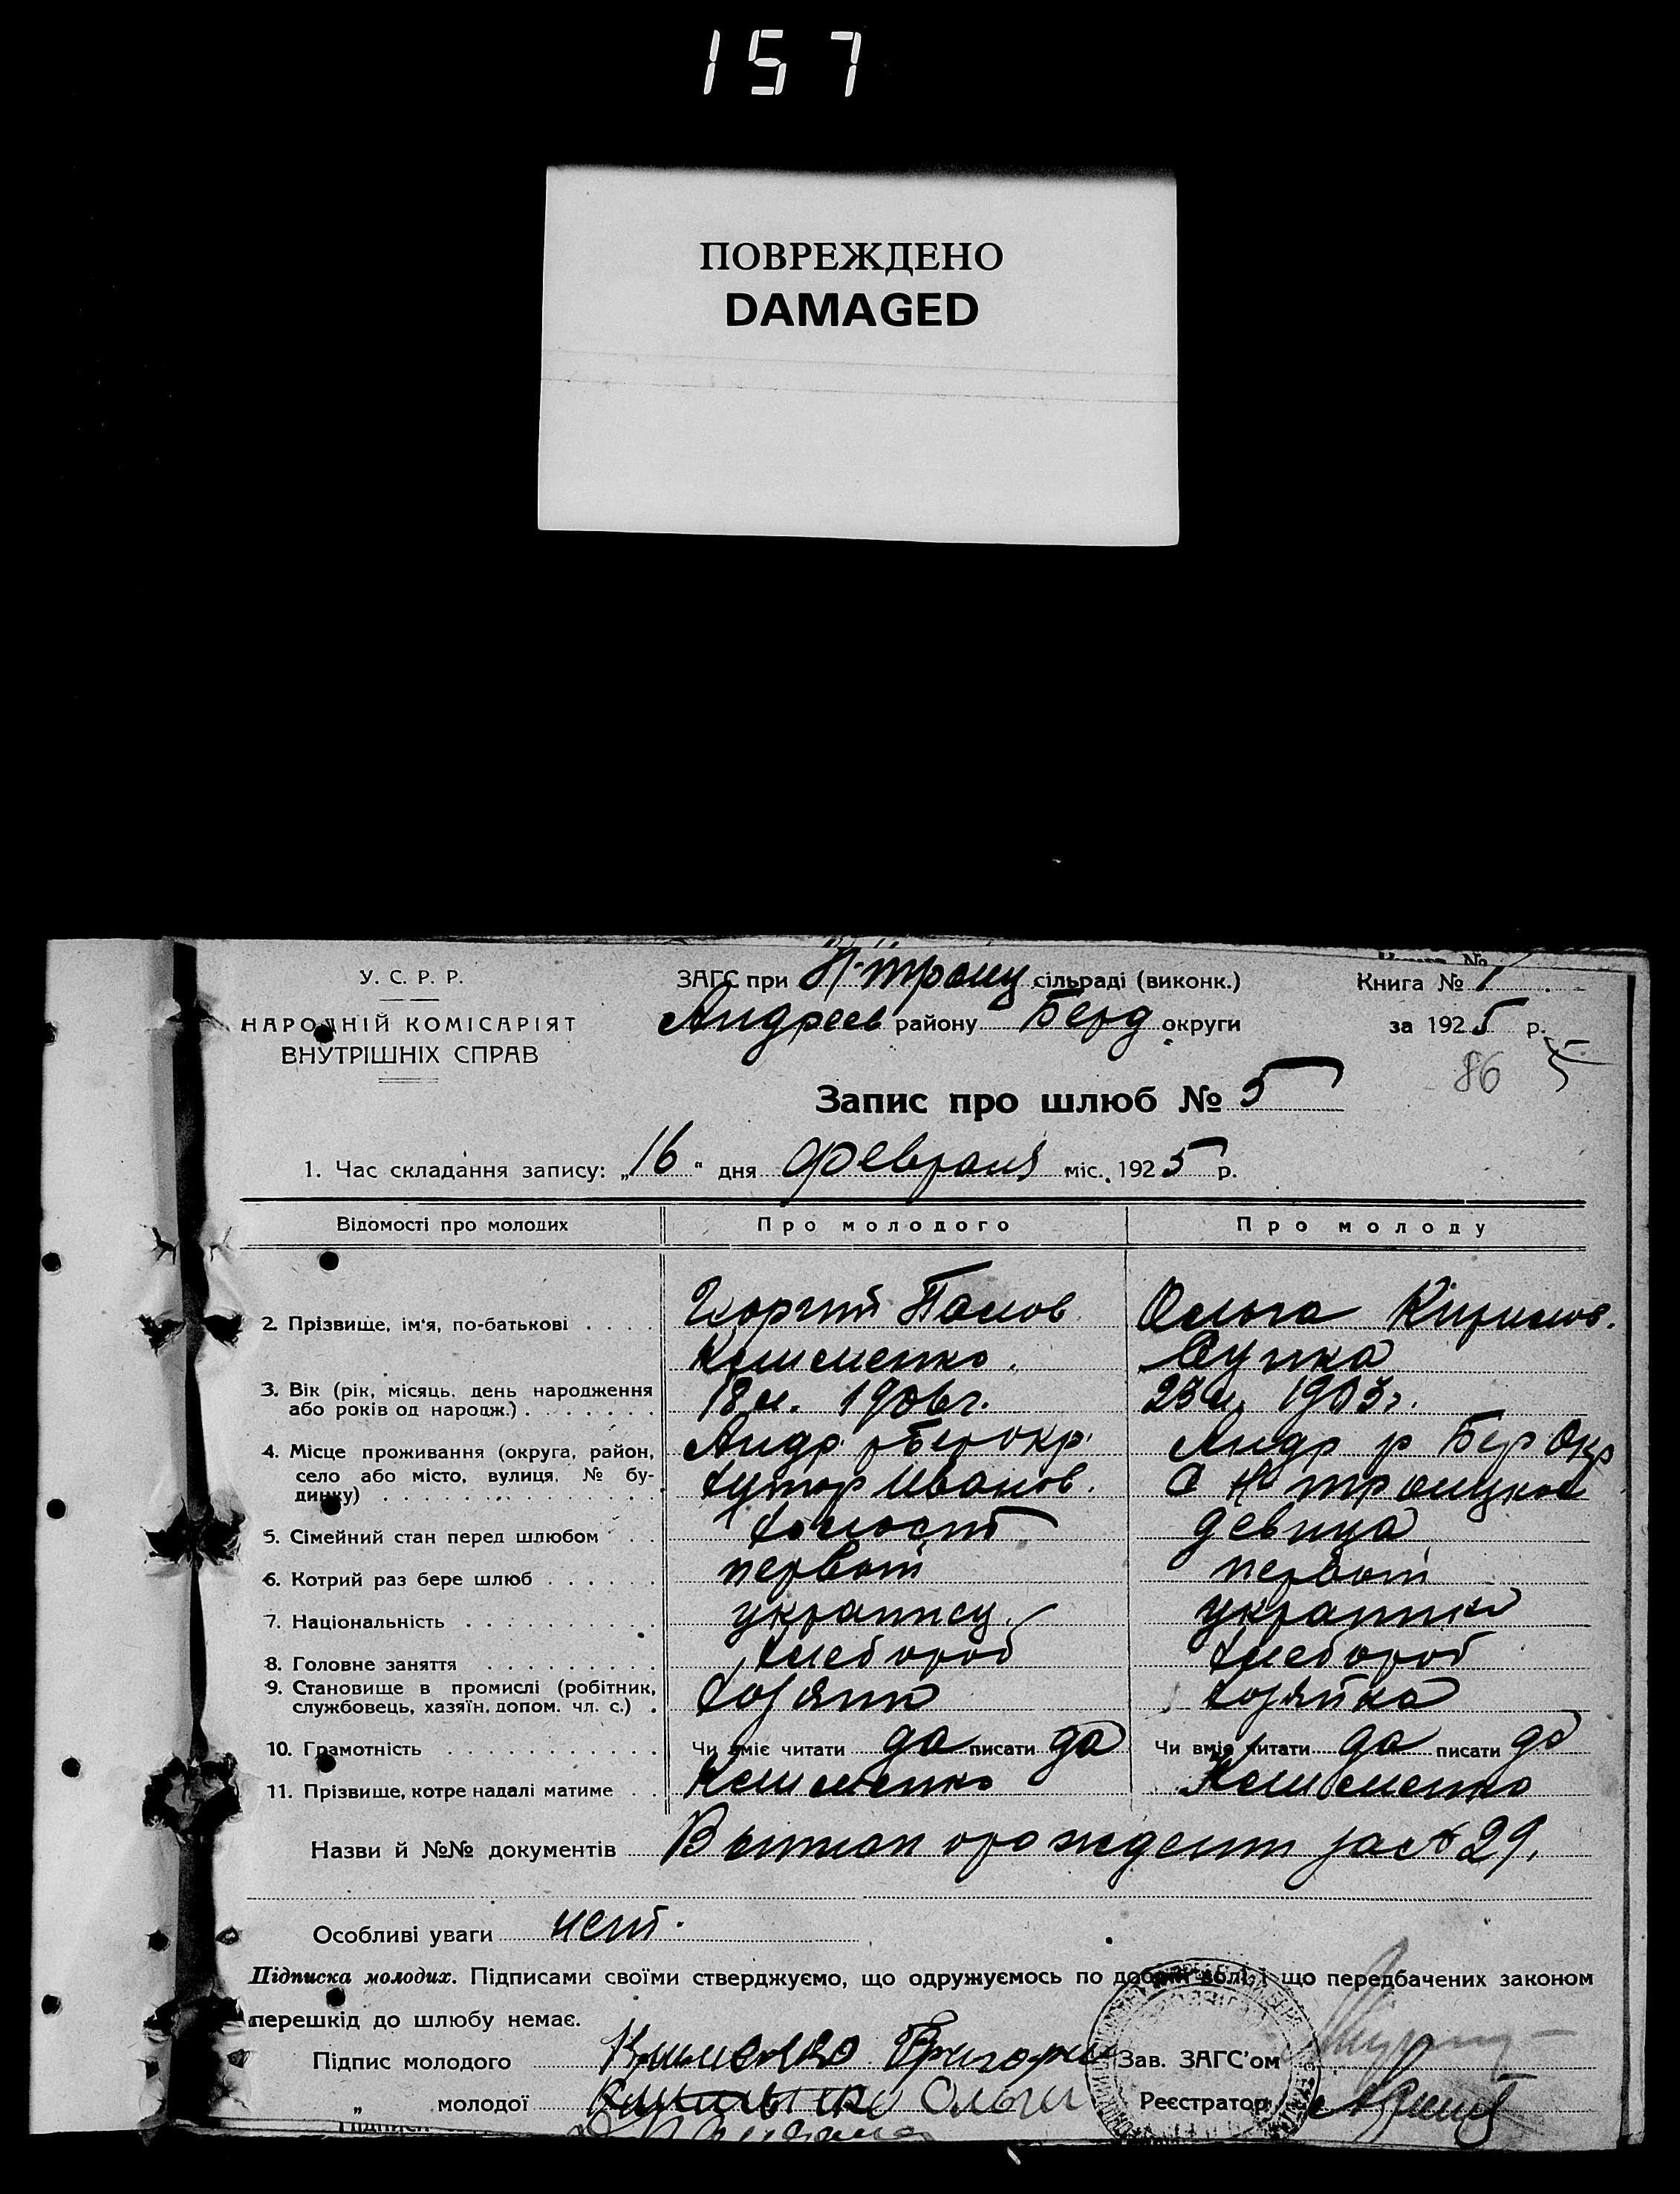 157
ПОВРЕЖДЕНО
DAMAGED
У. С. Р. Р.
НАРОДНІЙ КОМІСАРІЯТ
ВНУТРІШНІХ СПРАВ
ЗАГС при Н-троиц сільраді (виконк.)
Андреев району Берд округи
Книга № 1
за 1925 р.
86
Запис про шлюб № 5
1. Час складання запису: „16" дня февраля міс. 1925 р.
Відомості про молодих Про молодого Про молоду
2. Прізвище, ім'я, по-батькові . . . . Павлов Ольга Кирилов.
Клименко.
3. Вік (рік, місяць, день народження
або років од народж.) . . . . . . . 18 л. 1906 г. 1905 г.
4. Місце проживання (округа, район, Андр. р Бер окр. Андр р Бер Окр
село або місто, вулиця, № бу- хутор Иванов. С Н троицкое
динку) . . . . . . . . . . . . . .
5. Сімейний стан перед шлюбом . . холост девица
6. Котрий раз бере шлюб . . . . . . первый первый
7. Національність . . . . . . . . . . украинец украинка
8. Головне заняття . . . . . . . . . хлебороб хлебороб
9. Становище в промислі (робітник,
службовець, хазяїн, допом. чл. с.) . хозяин хозяйка
10. Грамотність . . . . . . . . . . . Чи вміє читати да писати да Чи вміє читати да писати да
11. Прізвище, котре надалі матиме . . Клименко Клименко
Назви й №№ документів Выписи о рождении за № 29.
Особливі уваги нет.
Підписка молодих. Підписами своїми стверджуємо, що одружуємось по добрій волі, і що передбачених законом
перешкід до шлюбу немає.
Підпис молодого Клименко Зав. ЗАГС'ом
„ молодої Ольга Реєстратор